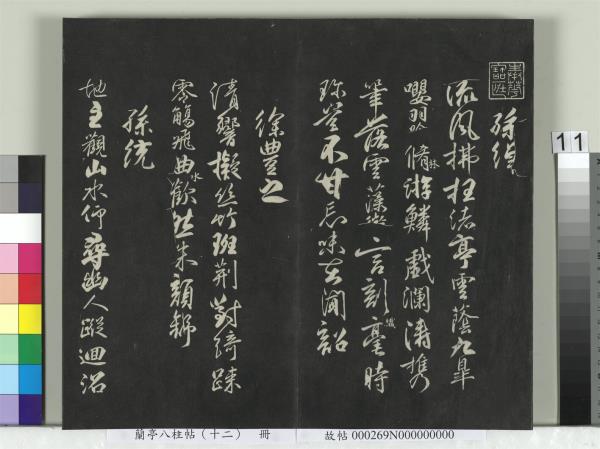 孫綽
流風拂枉渚亭雲蔭九皐
嚶羽吟脩林游鱗戲瀾濤攜
筆落雲藻微言剖纖毫時
珍豈不甘忘味在聞韶
徐豊之
清響擬絲竹班荆對綺疎
零觴飛曲水歡然朱顏舒
孫統
地主觀山水仰尋幽人蹤迴沼
11
蘭亭八柱帖（十二） 冊
故帖 000269N000000000